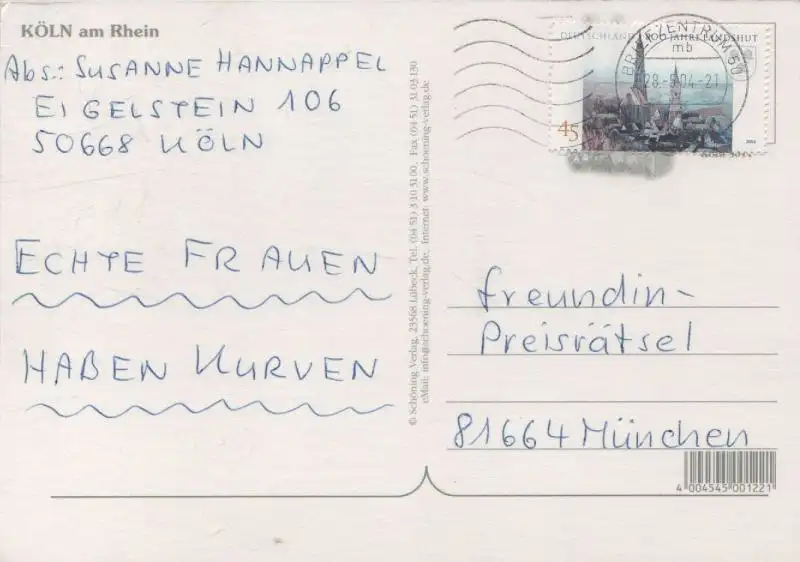 KÖLN am Rhein
Abs.: SUSANNE HANNAPPEL
EIGELSTEIN 106
50668 KÖLN
ECHTE FRAUEN
HABEN KURVEN
© Schöning Verlag, 23568 Lübeck, Tel. (04 51) 3 10 31 00, Fax (04 51) 31 03 130
eMail: info@schoening-verlag.de, Internet: www.schoening-verlag.de
DEUTSCHLAND 800 JAHRE LANDSHUT
45
BRIEFZENTRUM 50
mb
28.-5.04-21
freundin-
Preisrätsel
81664 München
4 004545 001221